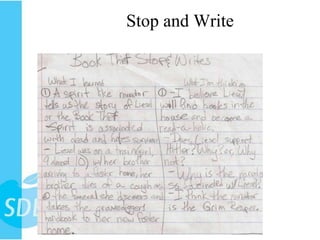 Stop and Write
Book Thief Stop & Writes
What I learned What I'm thinking
① A spirit like narrator ① - I believe Liesel
tells us the story of Liesel will find books in the
or the Book Thief house and become a
- Spirit is associated read-a-holic.
with death and hates survivors - Does Liesel support
- Liesel was on a train (girl Hitler? Why or Why
9 almost 10) w/ her brother not?
arriving to a foster home, her - Why is the
brother dies of a cough w/ Liesel?
the funeral she - I think the narrator
takes the gravediggers is the Grim Reaper.
handbook to her new foster
home.
SDE